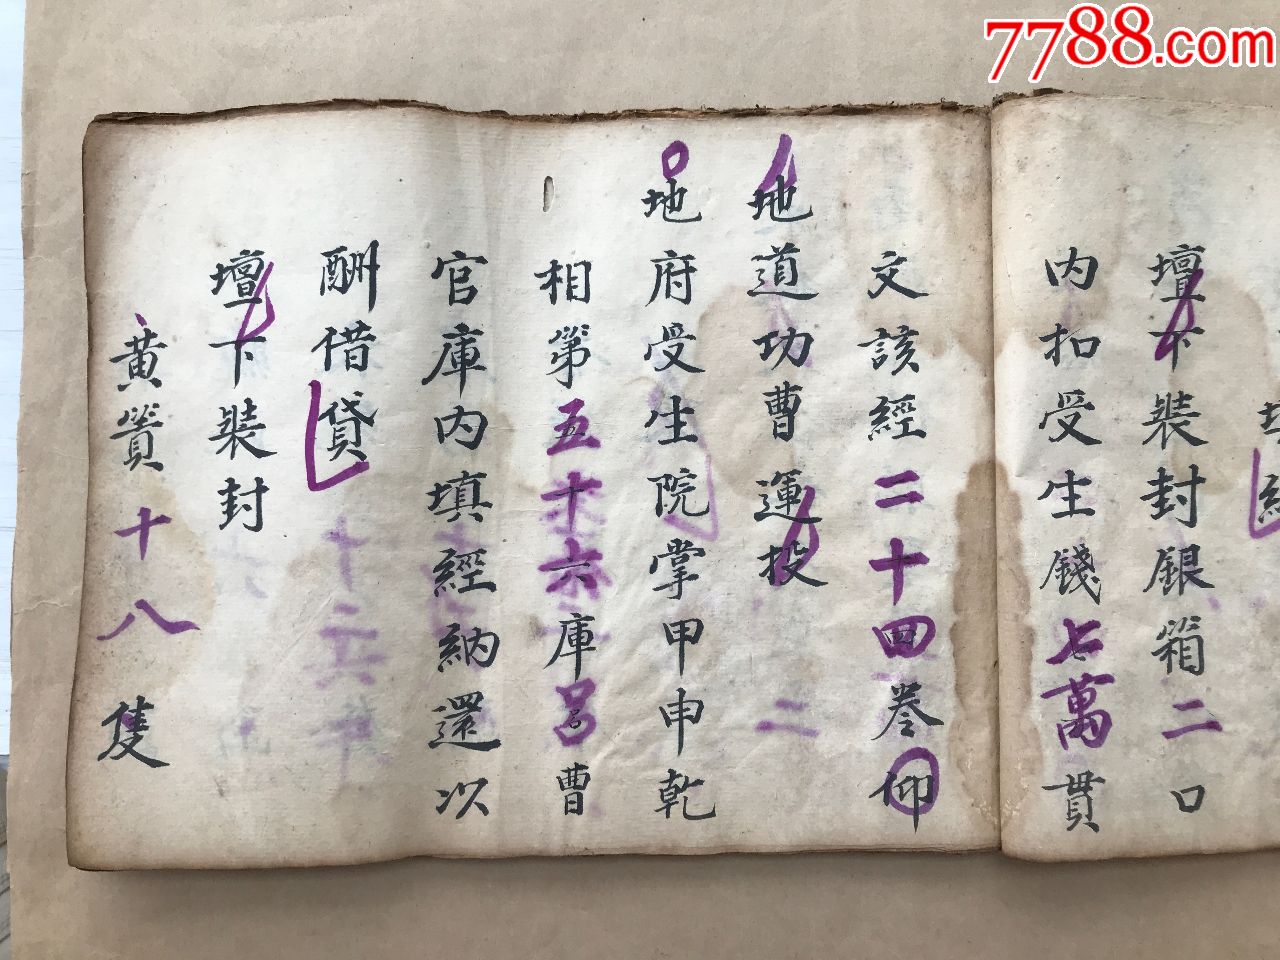 7788.com
壇下裝封銀箱二口
内扣受生錢七萬貫
文該經二十四卷仰
地道功曹運投
地府受生院掌甲申乾
相第五十六庫呂曹
官庫内填經納還次
酬借貸
壇下裝封
黄簣十八隻